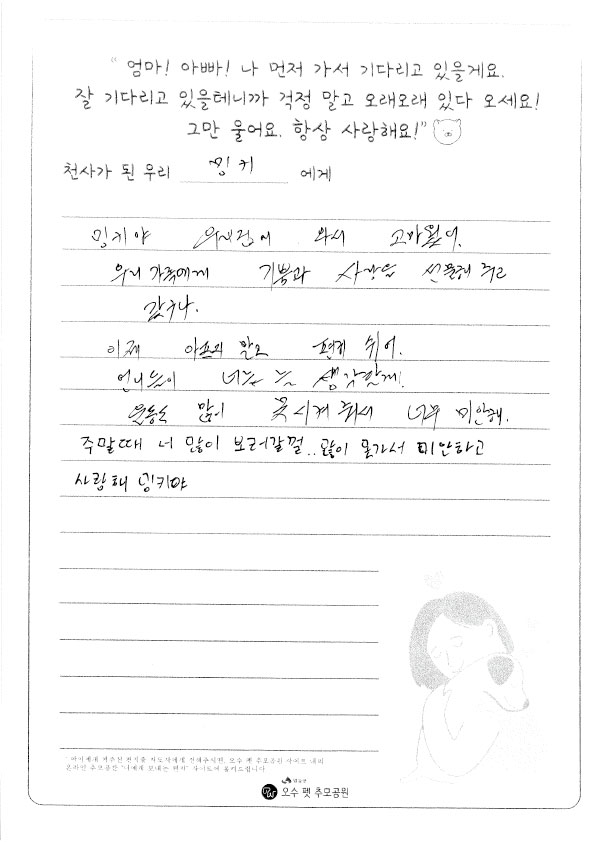 “ 엄마! 아빠! 나 먼저 가서 기다리고 있을게요.
잘 기다리고 있을테니까 걱정 말고 오래오래 있다 오세요!
그만 울어요. 항상 사랑해요!”
천사가 된 우리 밍키 에게
밍키야 와서 고마웠어.
우리 가족에게 기쁨과 사랑을 선물해 주고
갔구나.
이제 아프지 말고 편히 쉬어.
언니들이 너를 늘 생각할게.
운동도 많이 못시켜 줘서 너무 미안해.
주말때 너 많이 보러갈껄..많이 못가서 미안하고
사랑해 밍키야
오수 펫 추모공원